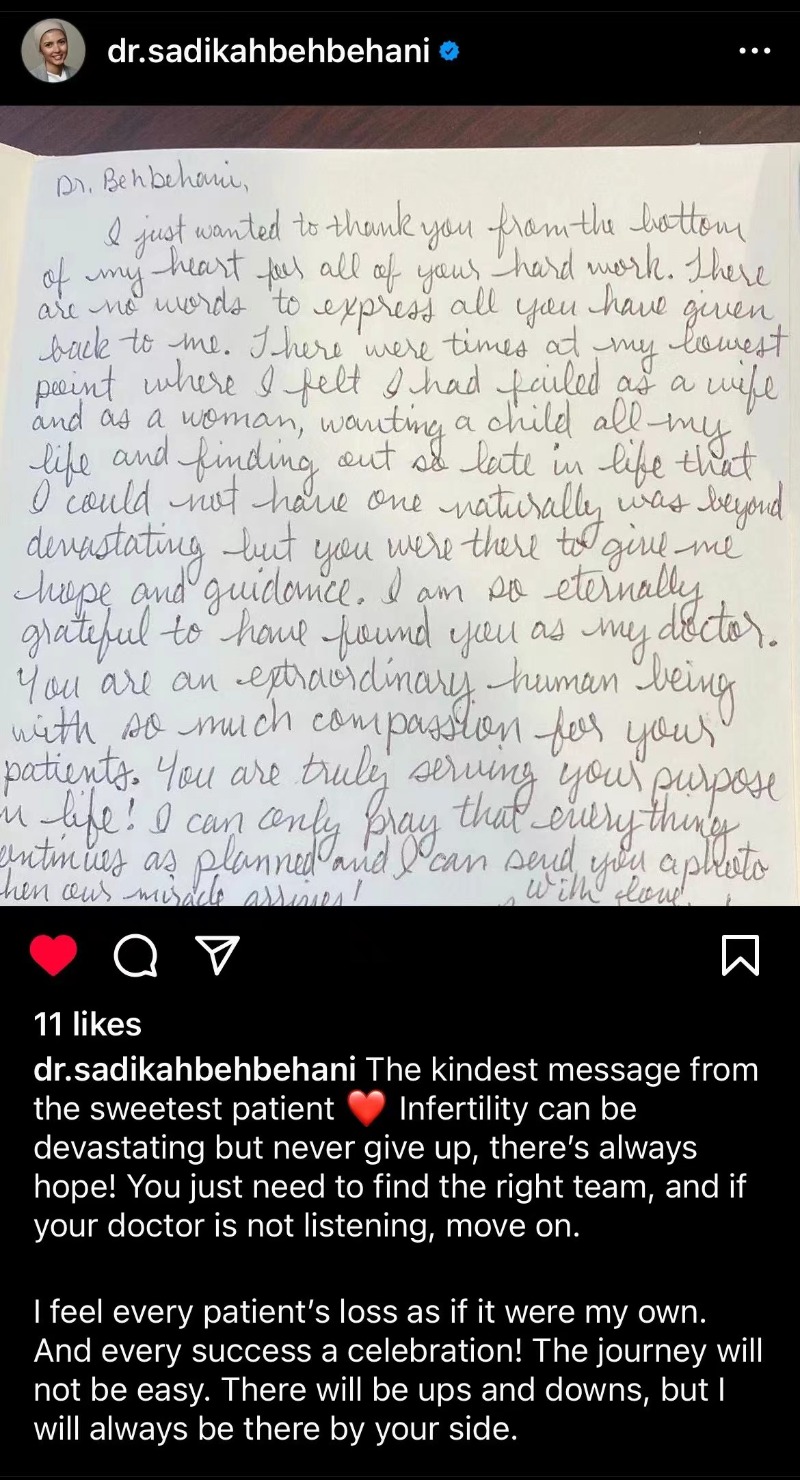 dr.sadikahbehbehani
Dr. Behbehani,
I just wanted to thank you from the bottom
of my heart for all of your hard work. There
are no words to express all you have given
back to me. There were times at my lowest
point where I felt I had failed as a wife
and as a woman, wanting a child all my
life and finding out so late in life that
I could not have one naturally was beyond
devastating but you were there to give me
hope and guidance. I am so eternally
grateful to have found you as my doctor.
You are an extraordinary human being
with so much compassion for your
patients. You are truly serving your purpose
life! I can only pray that everything
as planned and I can send you a photo
our miracle arrives! With love,
11 likes
dr.sadikahbehbehani The kindest message from
the sweetest patient ❤️ Infertility can be
devastating but never give up, there's always
hope! You just need to find the right team, and if
your doctor is not listening, move on.
I feel every patient's loss as if it were my own.
And every success a celebration! The journey will
not be easy. There will be ups and downs, but I
will always be there by your side.